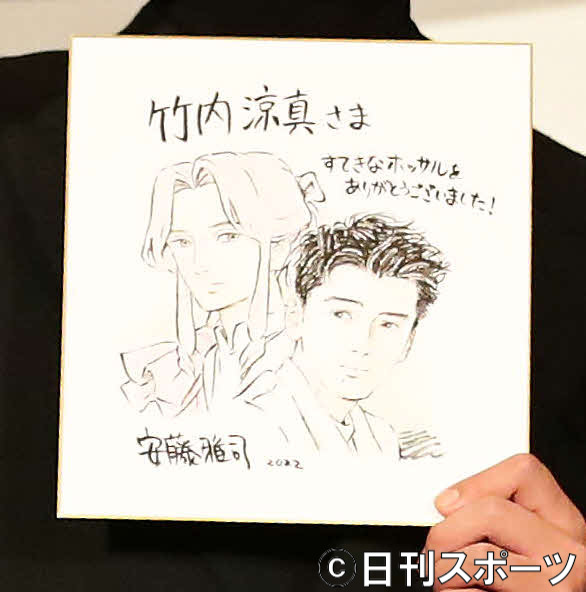 竹内涼真さま
すてきなホッサルを
ありがとうございました!
安藤雅司 2022
©日刊スポーツ